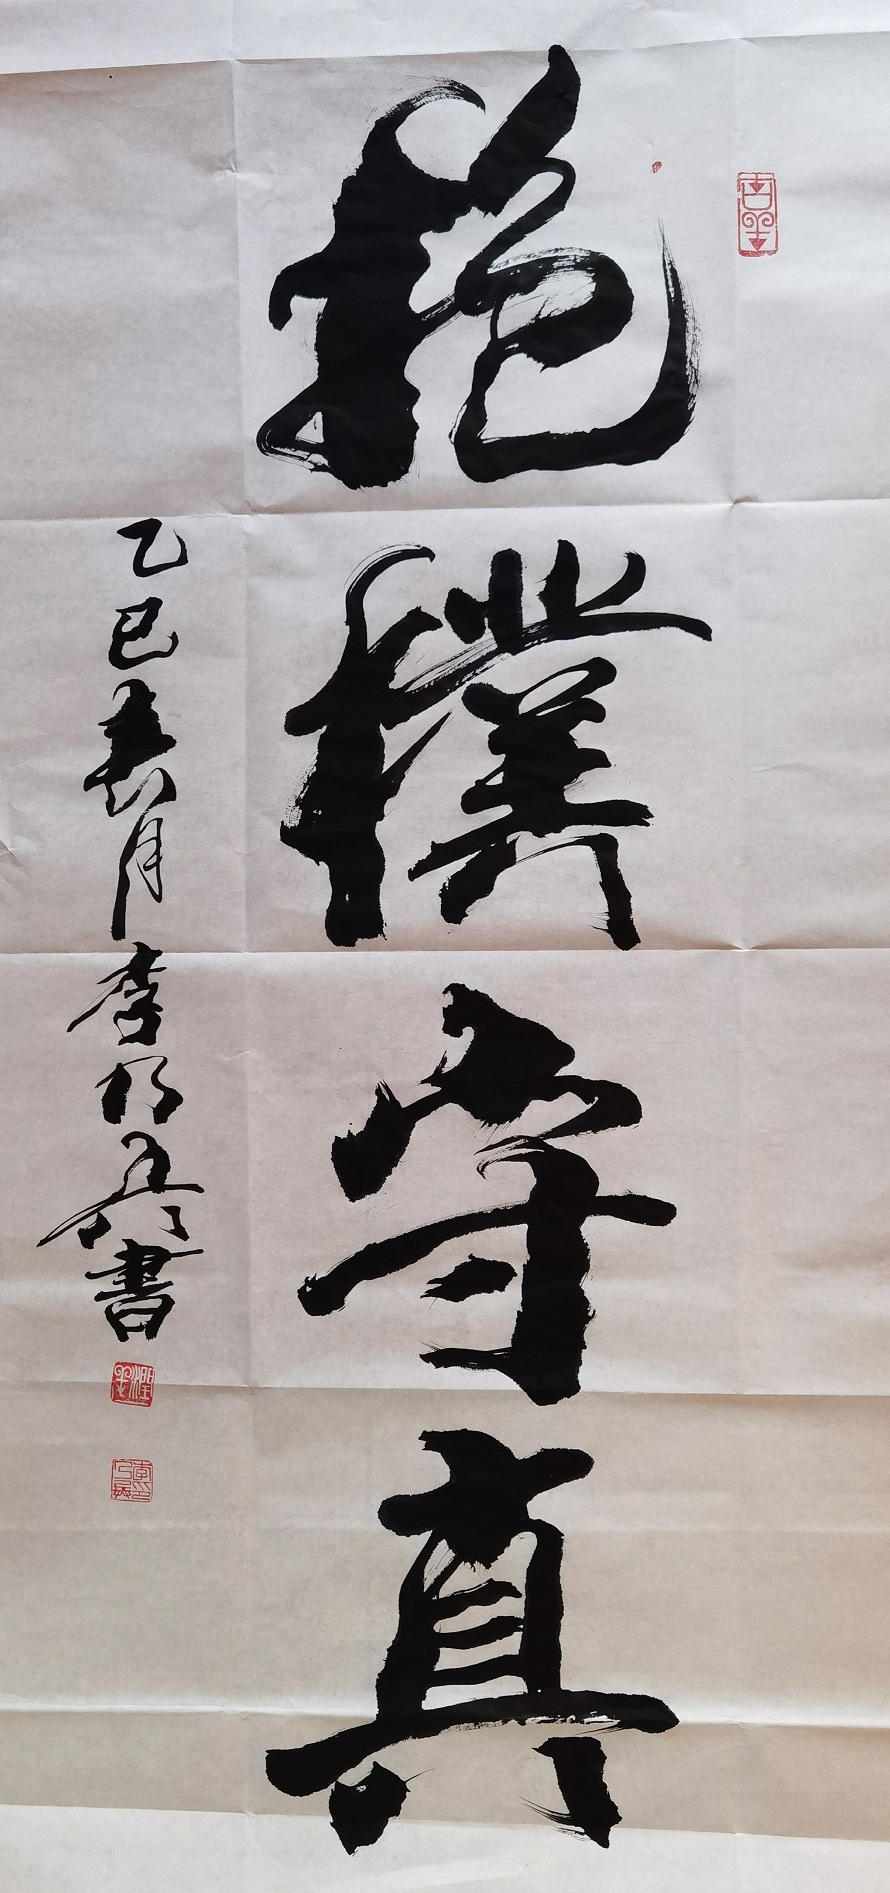 抱樸守真
乙巳春月李乃兵書